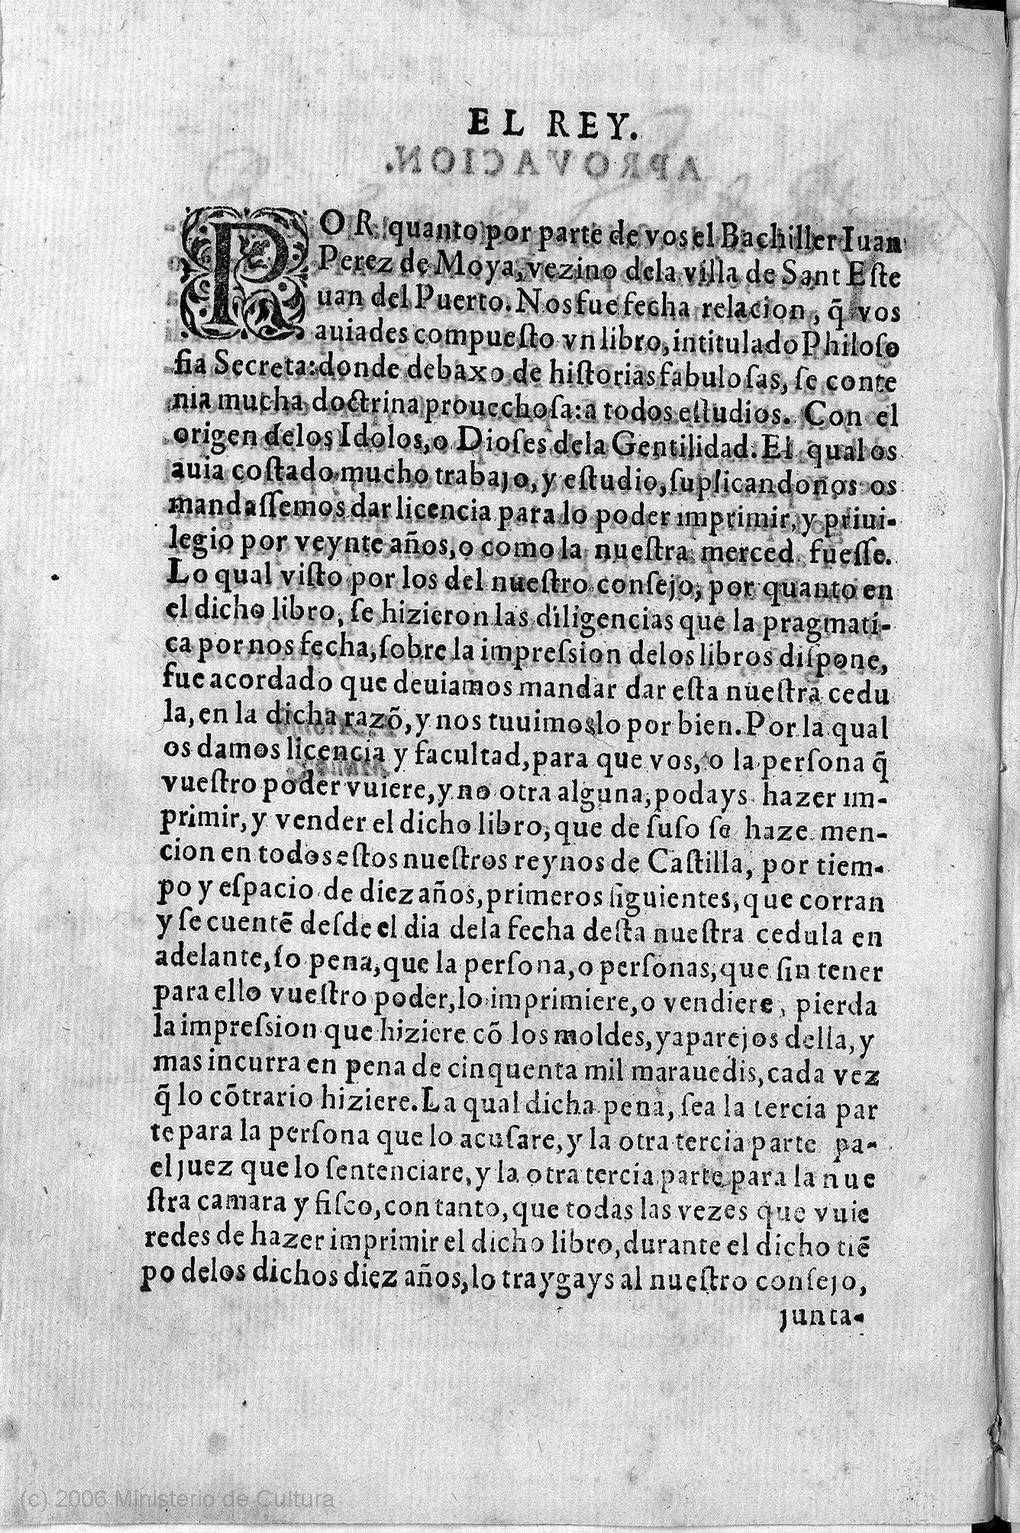 EL REY.
APROVACION.
POR quanto por parte de vos el Bachiller Iuan
Perez de Moya, vezino dela villa de Sant Este
uan del Puerto. Nos fue fecha relacion, q̃ vos
auiades compuesto vn libro, intitulado Philoso
fia Secreta: donde debaxo de historias fabulosas, se conte
nia mucha doctrina prouechosa: a todos estudios. Con el
origen delos Idolos, o Dioses dela Gentilidad. El qual os
auia costado mucho trabajo, y estudio, suplicandonos os
mandassemos dar licencia para lo poder imprimir, y priui-
legio por veynte años, o como la nuestra merced fuesse.
Lo qual visto por los del nuestro consejo, por quanto en
el dicho libro, se hizieron las diligencias que la pragmati-
ca por nos fecha, sobre la impression delos libros dispone,
fue acordado que deuiamos mandar dar esta nuestra cedu
la, en la dicha razõ, y nos tuuimoslo por bien. Por la qual
os damos licencia y facultad, para que vos, o la persona q̃
vuestro poder vuiere, y no otra alguna, podays hazer im-
primir, y vender el dicho libro, que de suso se haze men-
cion en todos estos nuestros reynos de Castilla, por tiem-
po y espacio de diez años, primeros siguientes, que corran
y se cuentẽ desde el dia dela fecha desta nuestra cedula en
adelante, so pena, que la persona, o personas, que sin tener
para ello vuestro poder, lo imprimiere, o vendiere, pierda
la impression que hiziere cõ los moldes, y aparejos della, y
mas incurra en pena de cinquenta mil marauedis, cada vez
q̃ lo cõtrario hiziere. La qual dicha pena, sea la tercia par
te para la persona que lo acusare, y la otra tercia parte pa-
el juez que lo sentenciare, y la otra tercia parte para la nue
stra camara y fisco, con tanto, que todas las vezes que vuie
redes de hazer imprimir el dicho libro, durante el dicho tiẽ
po delos dichos diez años, lo traygays al nuestro consejo,
junta-
(c) 2006 Ministerio de Cultura